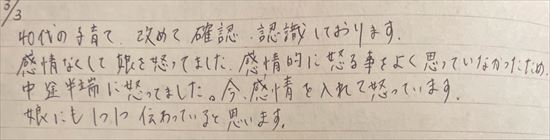 3/3
40代の子育て、改めて確認、認識しております。
感情なくして娘を怒ってました。感情的に怒る事をよく思っていなかったため
中途半端に怒ってました。今、感情を入れて怒っています。
娘にも1つ1つ伝わっていると思います。